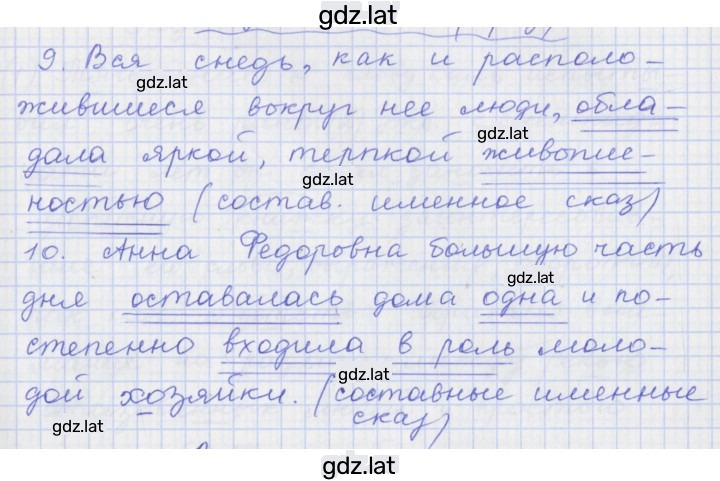 gdz.lat
9. Вся снедь, как и располо-
gdz.lat
жившиеся вокруг нее люди, обла-
gdz.lat
дала яркой, терпкой живопис-
gdz.lat
ностью (состав. именное сказ)
10. Анна Федоровна большую часть
gdz.lat
дня оставалась дома одна и по-
степенно входила в роль моло-
gdz.lat
дой хозяйки. (составные именные
сказ)
gdz.lat
gdz.lat